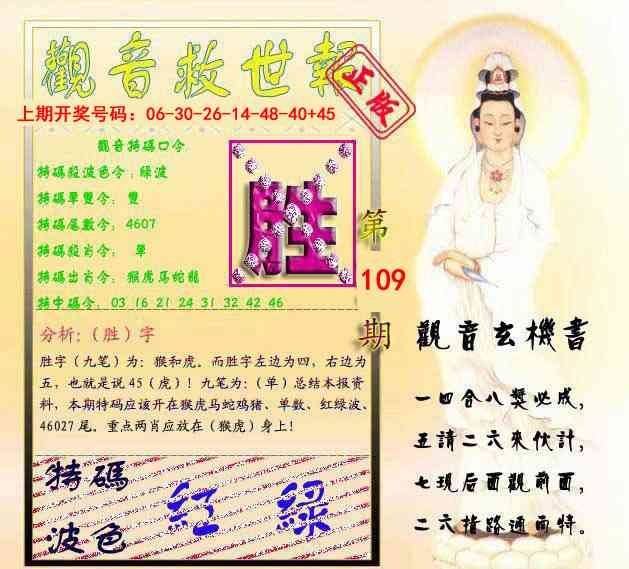 觀音救世報
正版
上期开奖号码：06-30-26-14-48-40+45
觀音特碼口令
特碼殺波色令：綠波
特碼單雙令：雙
特碼尾數令：4607
特碼殺肖令： 單
特碼出肖令：猴虎马蛇龍
特中碼令：03 16 21 24 31 32 42 46
胜
第
109
期
分析:（胜）字
胜字（九笔）为：猴和虎。而胜字左边为四，右边为
五，也就是说 45（虎）！九笔为:（单）总结本报资
料，本期特码应该开在猴虎马蛇鸡猪、单数、红绿波、
46027 尾。重点两肖应放在（猴虎）身上！
特碼
波色
紅 綠
觀音玄機書
一四合八獎必成，
五請二六來伙計，
七現后面觀前面，
二六指路通面特。